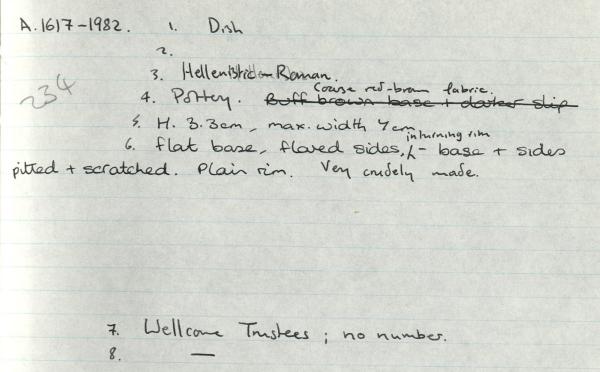 A.1617-1982. 1. Dish
2.
3. Hellenistic-Roman.
234
Coarse red-brown fabric.
4. Pottery. Buff brown base + darker slip
5. H. 3.3cm, max. width 7cm
inturning rim
6. flat base, flared sides, - base + sides
pitted + scratched. Plain rim. Very crudely made.
7. Wellcome Trustees ; no number.
8. —